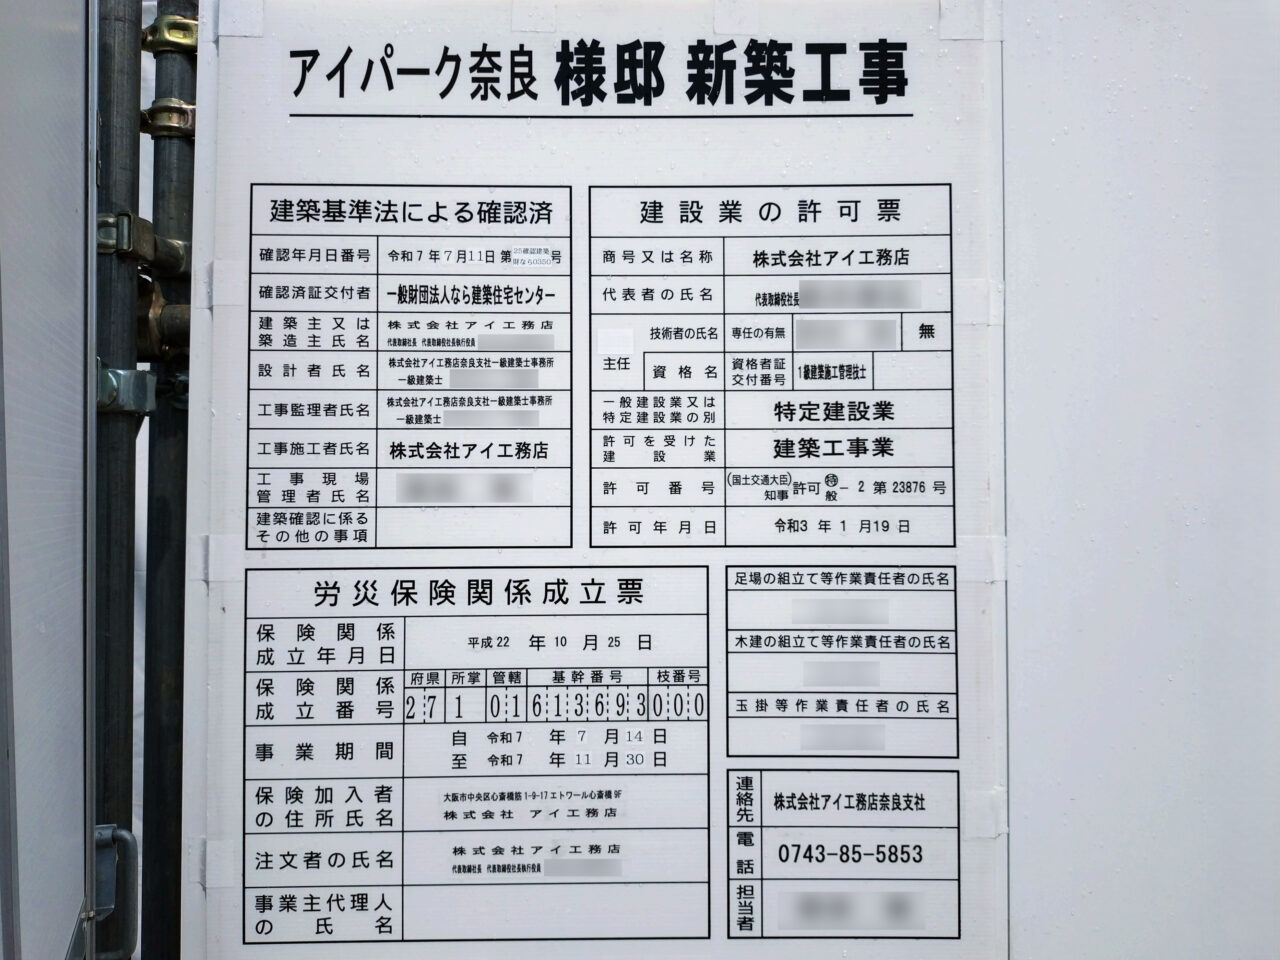 アイパーク奈良 様邸 新築工事
建築基準法による確認済
確認年月日番号 令和7年7月11日 第25確認建築財なら0350号
確認済証交付者 一般財団法人なら建築住宅センター
建築主又は築造主氏名 株式会社アイ工務店
代表取締役社長 代表取締役社長執行役員
設計者氏名 株式会社アイ工務店奈良支社一級建築士事務所
一級建築士
工事監理者氏名 株式会社アイ工務店奈良支社一級建築士事務所
一級建築士
工事施工者氏名 株式会社アイ工務店
工事現場管理者氏名
建築確認に係るその他の事項
建設業の許可票
商号又は名称 株式会社アイ工務店
代表者の氏名 代表取締役社長
主任 技術者の氏名 専任の有無 無
資格名 資格者証交付番号 1級建築施工管理技士
一般建設業又は特定建設業の別 特定建設業
許可を受けた建設業 建築工事業
許可番号 (国土交通大臣)知事 許可 特般-2 第23876号
許可年月日 令和3年1月19日
労災保険関係成立票
保険関係成立年月日 平成22年10月25日
保険関係成立番号 府県 所掌 管轄 基幹番号 枝番号
27 1 01 613693 000
事業期間 自 令和7年7月14日
至 令和7年11月30日
保険加入者の住所氏名 大阪市中央区心斎橋筋1-9-17エトワール心斎橋9F
株式会社 アイ工務店
注文者の氏名 株式会社アイ工務店
代表取締役社長 代表取締役社長執行役員
事業主代理人の氏名
足場の組立て等作業責任者の氏名
木建の組立て等作業責任者の氏名
玉掛等作業責任者の氏名
連絡先 株式会社アイ工務店奈良支社
電話 0743-85-5853
担当者